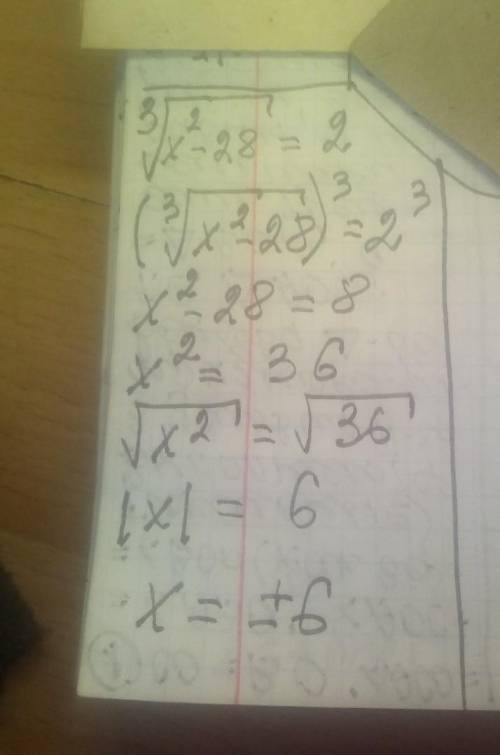 ∛(x² - 28) = 2
(∛(x² - 28))³ = 2³
x² - 28 = 8
x² = 36
√(x²) = √36
|x| = 6
x = ±6